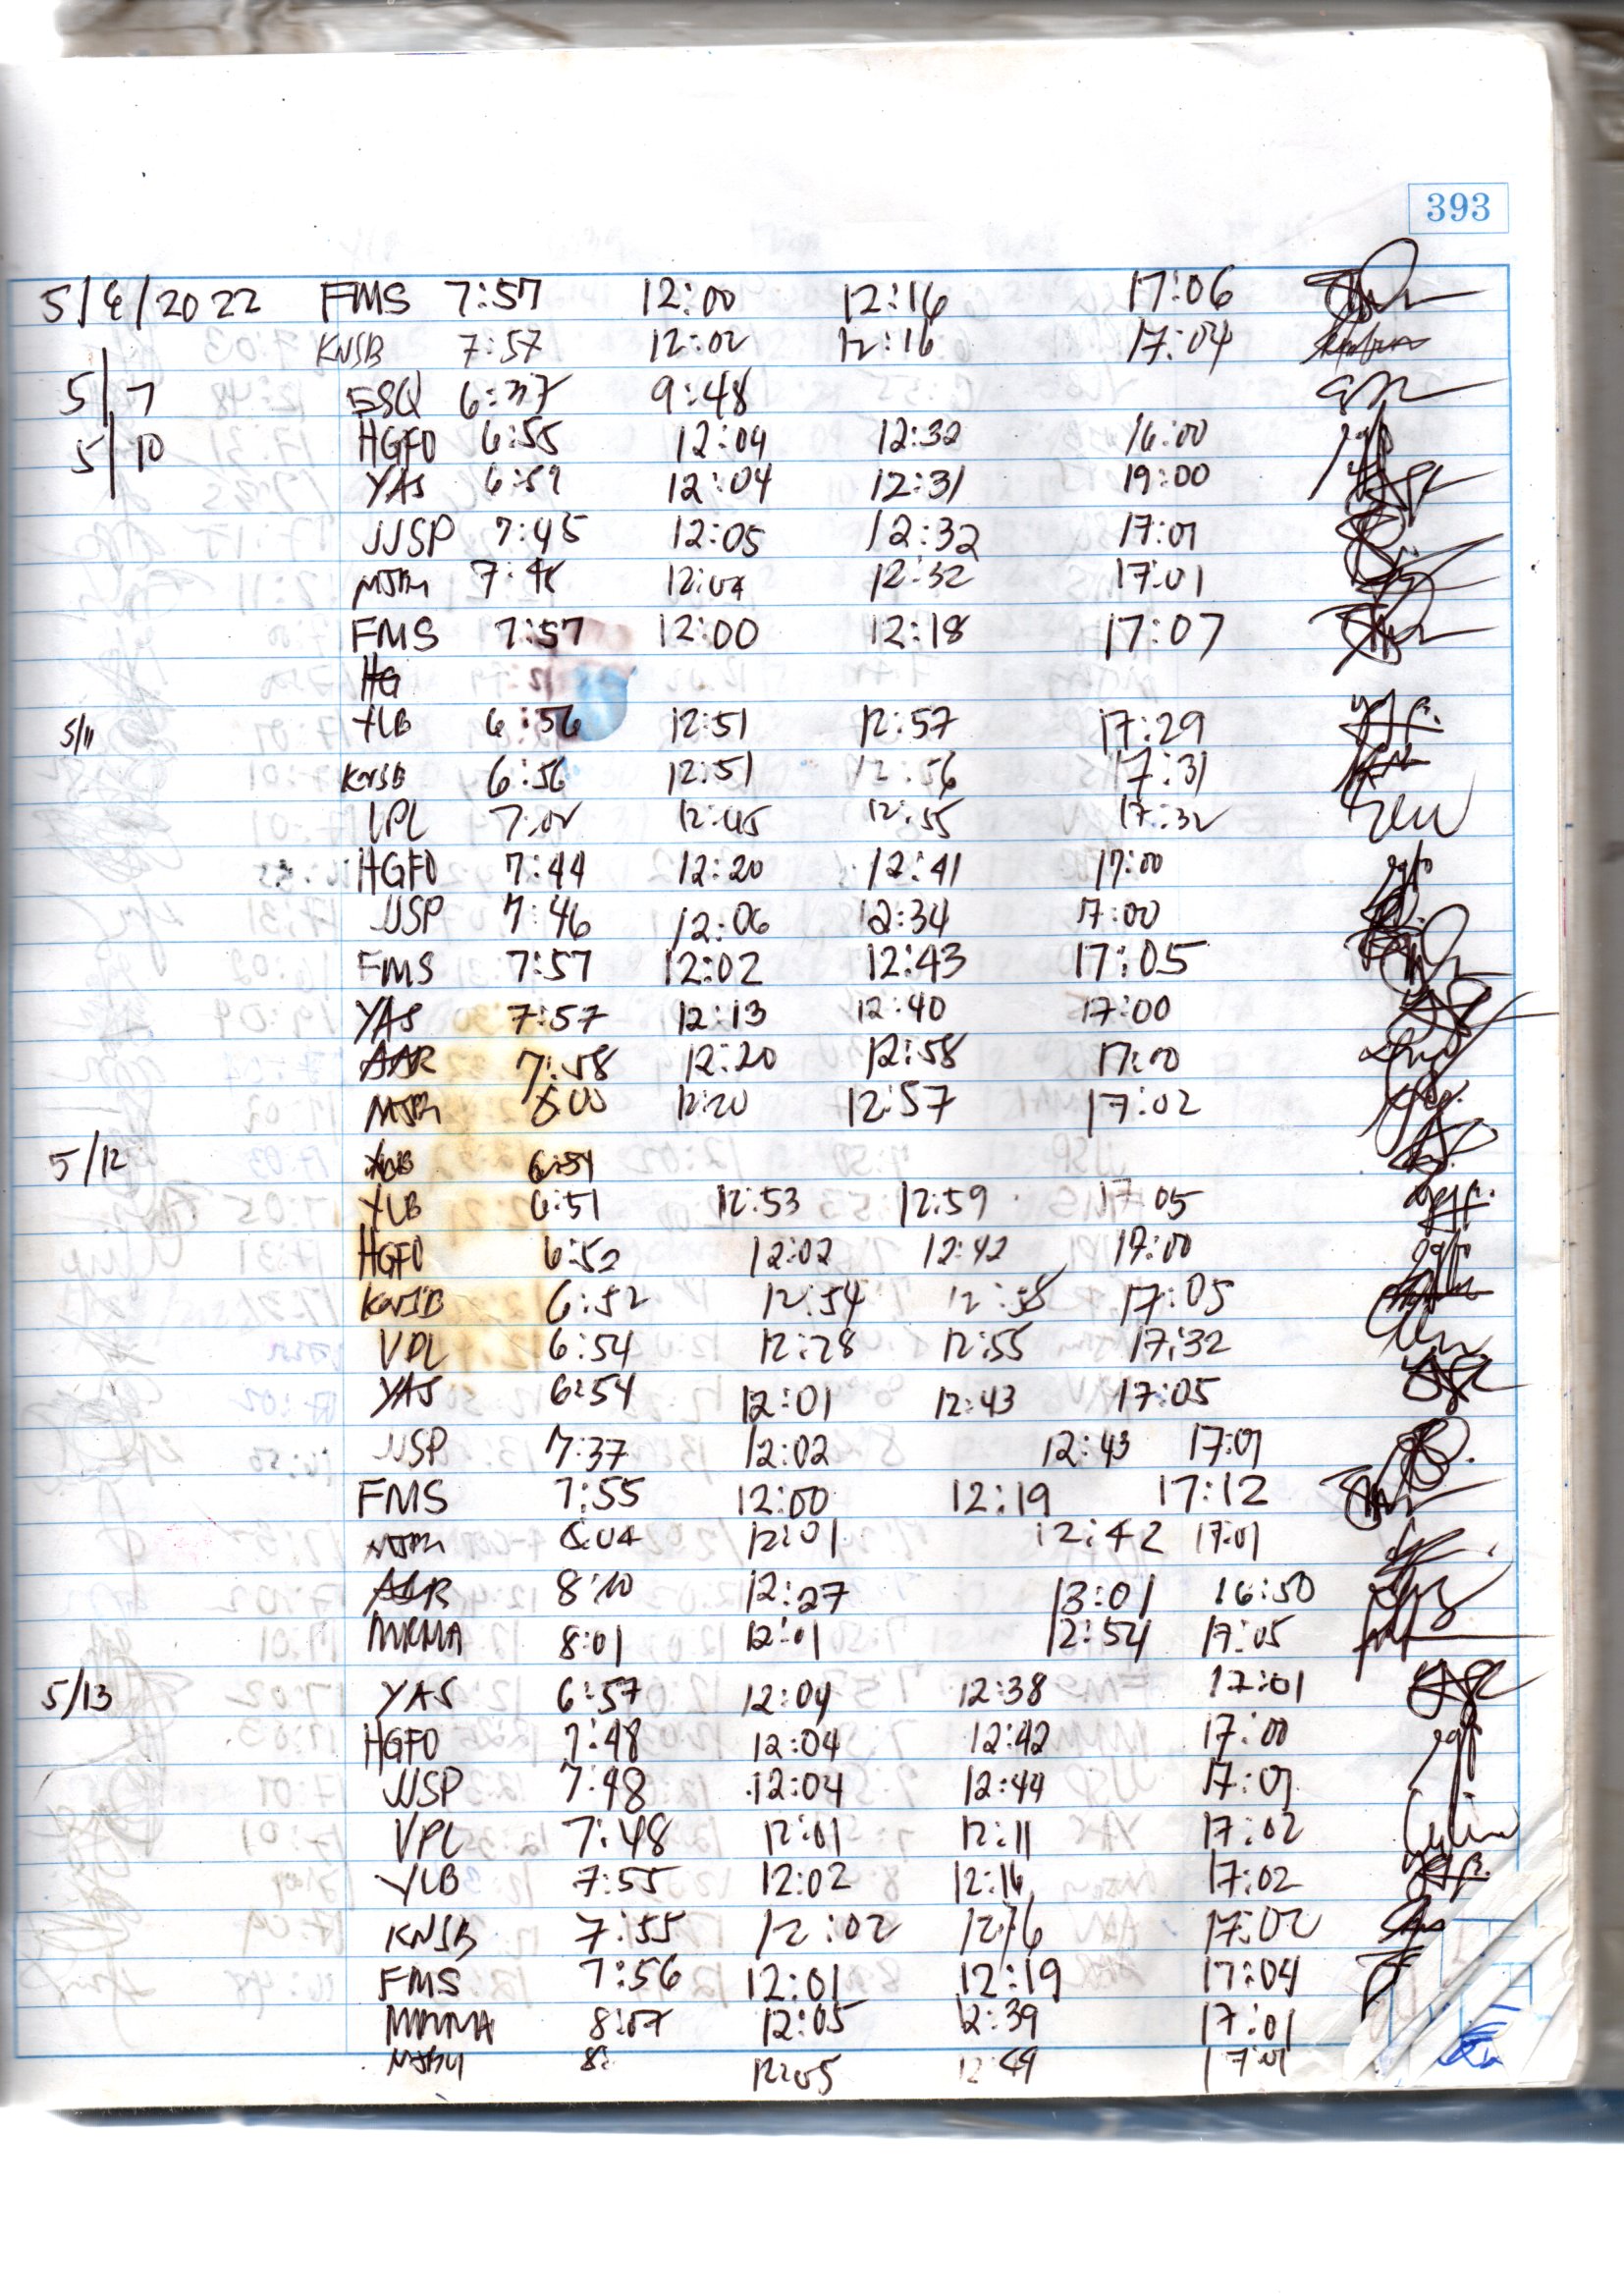 393
5/6/2022 FMS 7:57 12:00 12:16 17:06
KNSB 7:57 12:02 12:16 17:04
5/7 ESQ 6:37 9:48
5/10 HGFO 6:55 12:04 12:32 16:00
YAS 6:59 12:04 12:31 19:00
JJSP 7:45 12:05 12:32 17:01
MJBM 12:04 12:32 17:01
FMS 7:57 12:00 12:18 17:07
HG
5/11 YLB 6:56 12:51 12:57 17:29
KNSB 6:56 12:51 12:56 17:31
VPL 7:02 12:45 12:55 17:32
HGFO 7:44 12:20 12:41 17:00
JJSP 7:46 12:06 12:34 17:00
FMS 7:57 12:02 12:43 17:05
YAS 7:57 12:13 12:40 17:00
AAR 7:58 12:20 12:58 17:00
MJBM 8:00 12:20 12:57 17:02
5/12
YLB 6:51 12:53 12:59 17:05
HGFO 6:52 12:02 12:42 17:00
KNSB 6:52 12:54 12:58 17:05
VPL 6:54 12:28 12:55 17:32
YAS 6:54 12:01 12:43 17:05
JJSP 7:37 12:02 12:43 17:01
FMS 7:55 12:00 12:19 17:12
MJBM 8:04 12:01 12:42 17:01
AAR 8:10 12:27 13:01 16:50
MKMA 8:01 12:01 12:54 17:05
5/13 YAS 6:57 12:04 12:38 17:01
HGFO 7:48 12:04 12:42 17:00
JJSP 7:48 12:04 12:44 17:01
VPL 7:48 12:01 12:11 17:02
YLB 7:55 12:02 12:16 17:02
KNSB 7:55 12:02 12:16 17:02
FMS 7:56 12:01 12:19 17:04
MKMA 8:07 12:05 12:39 17:01
MJBM 8: 12:05 12:49 17:01